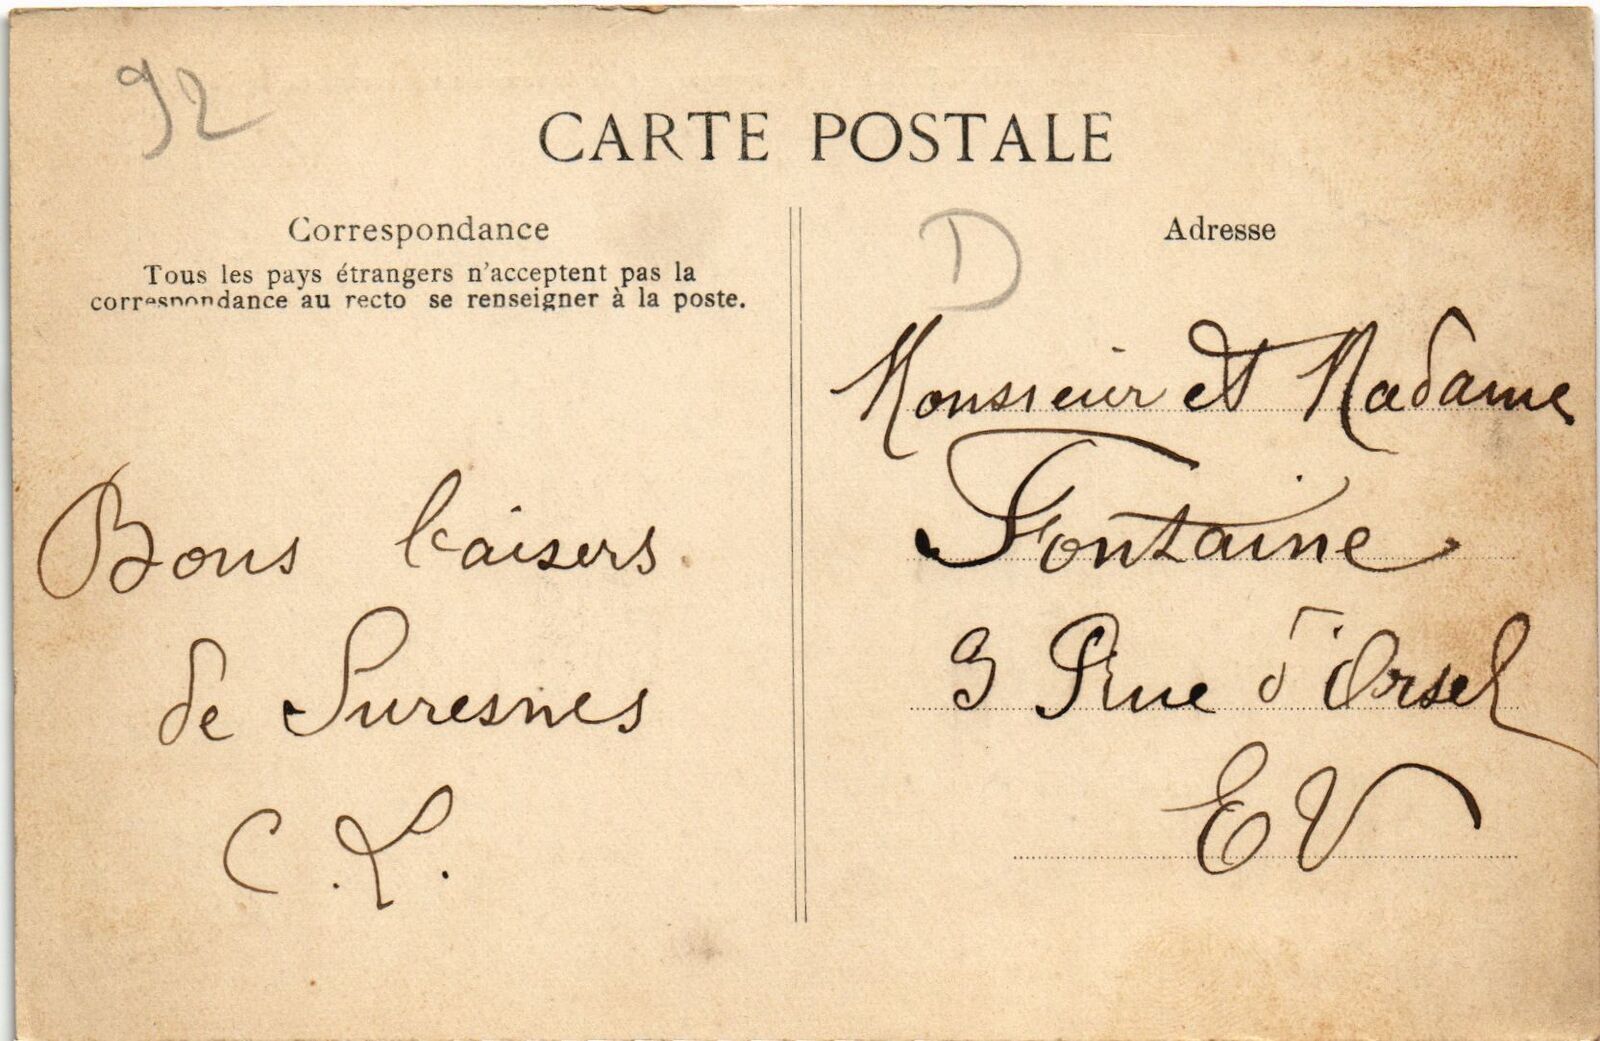 92
CARTE POSTALE
Correspondance
Tous les pays étrangers n'acceptent pas la
correspondance au recto se renseigner à la poste.
Bons baisers
de Suresnes
C. L.
D
Adresse
Monsieur et Madame
Fontaine
9 Rue d'Orsel
EV